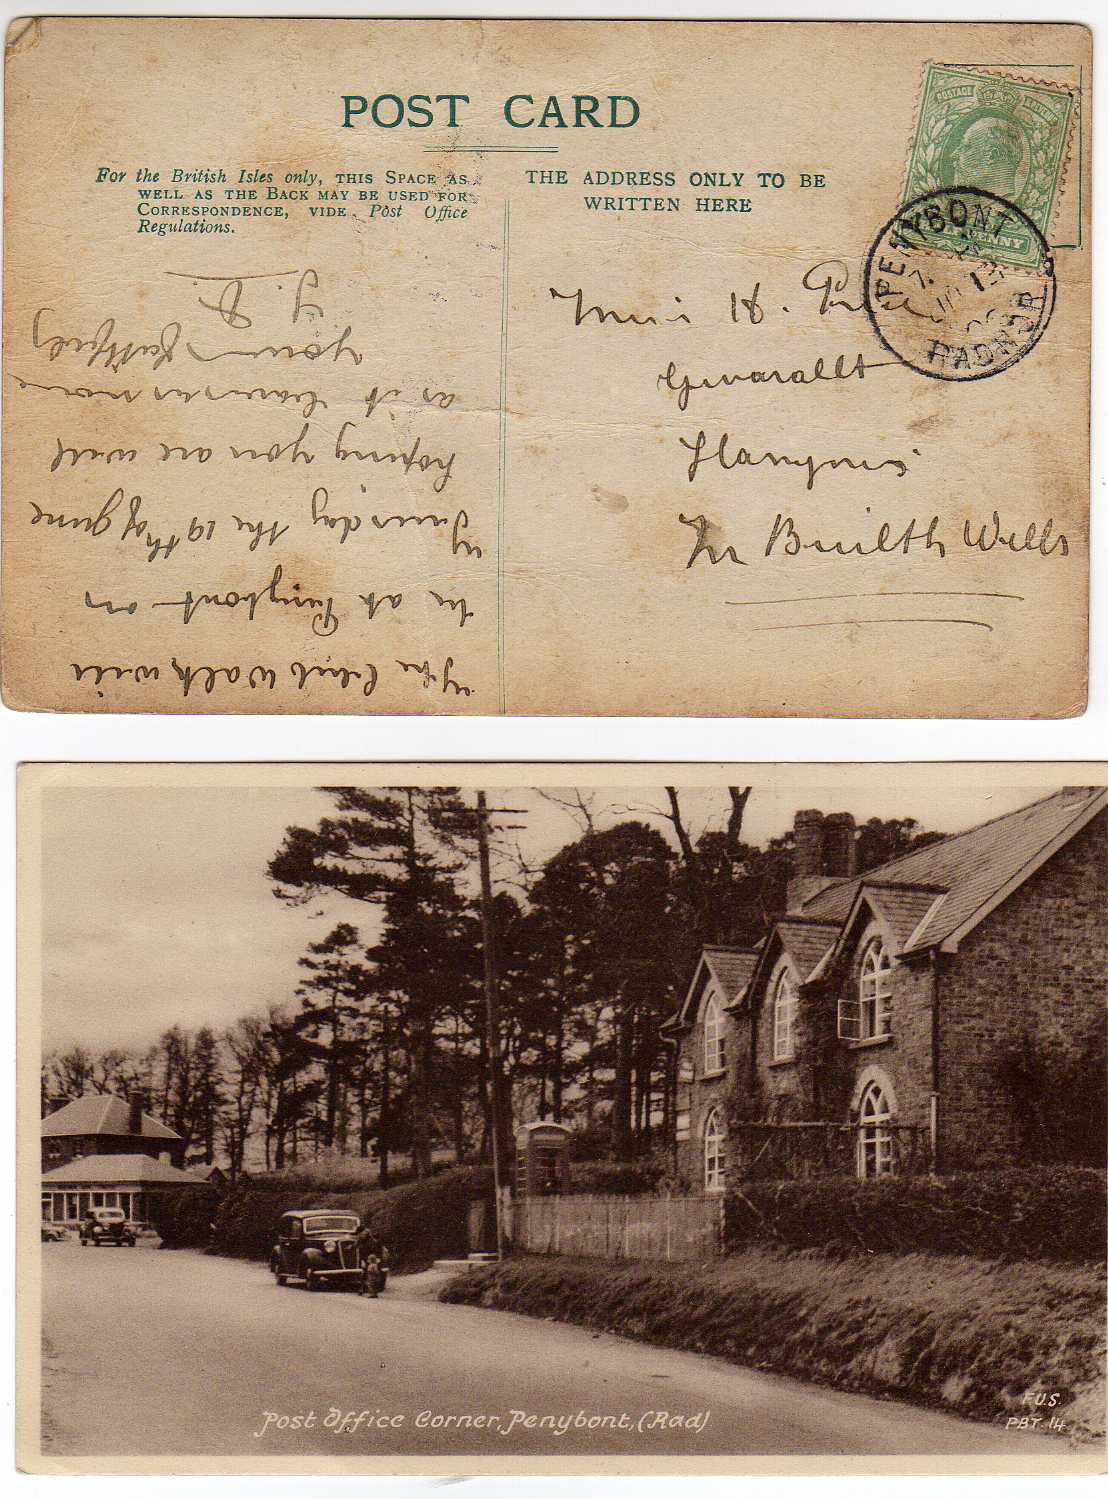 POST CARD
For the British Isles only, THIS SPACE AS
WELL AS THE BACK MAY BE USED FOR
CORRESPONDENCE, VIDE Post Office
Regulations.
THE ADDRESS ONLY TO BE
WRITTEN HERE
POSTAGE
PENNY
PENYBONT
JU 15
RADNOR
Miss H. Price
Gwarallt
Llanynis
Nr Builth Wells
The Club Walk will
be at Penybont on
Thursday the 19th of June
hoping you are well
as it leaves me
yours faithfully
Post Office Corner, Penybont, (Rad)
F.U.S.
PBT. 14.